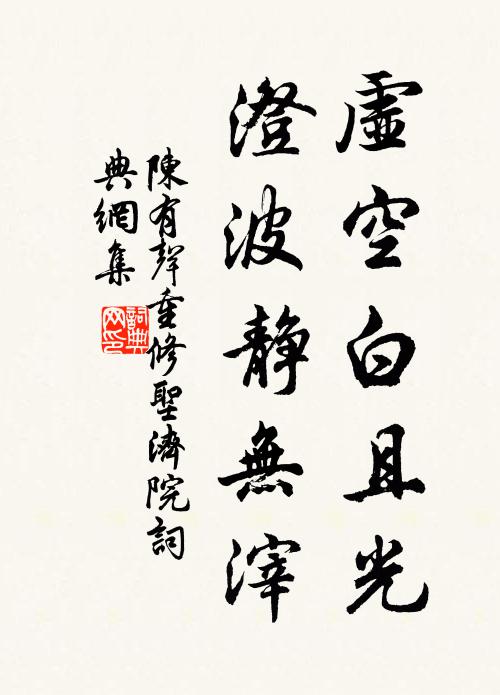 虛空白且光
澄波靜無滓
陳有聲重修聖濟院詞
典網集
詞典网印